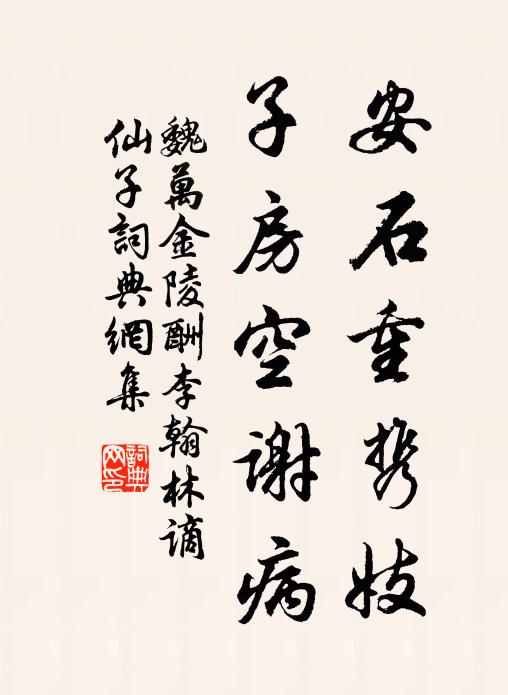 安石重携妓
子房空谢病
魏萬金陵酬李翰林謫
仙子詞典網集
詞典網印